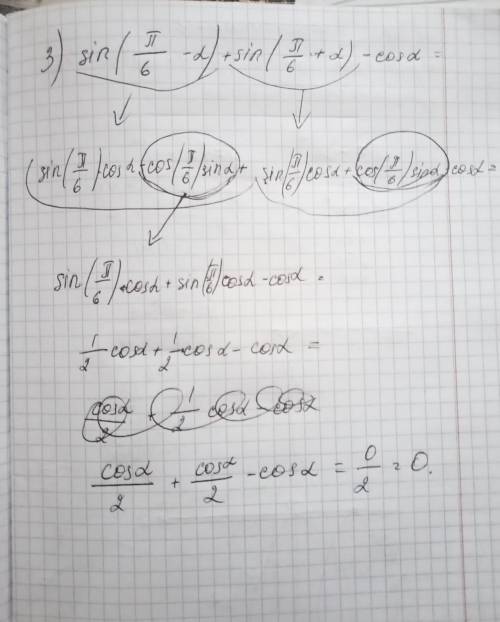 3) sin(π/6 - α) + sin(π/6 + α) - cosα =
(sin(π/6)cosα - cos(π/6)sinα) + sin(π/6)cosα + cos(π/6)sinα) cosα =
sin(π/6)·cosα + sin(π/6)cosα - cosα =
1/2 cosα + 1/2·cosα - cosα =
cosα/2 + 1/2 cosα - cosα
cosα/2 + cosα/2 - cosα = 0/2 = 0.